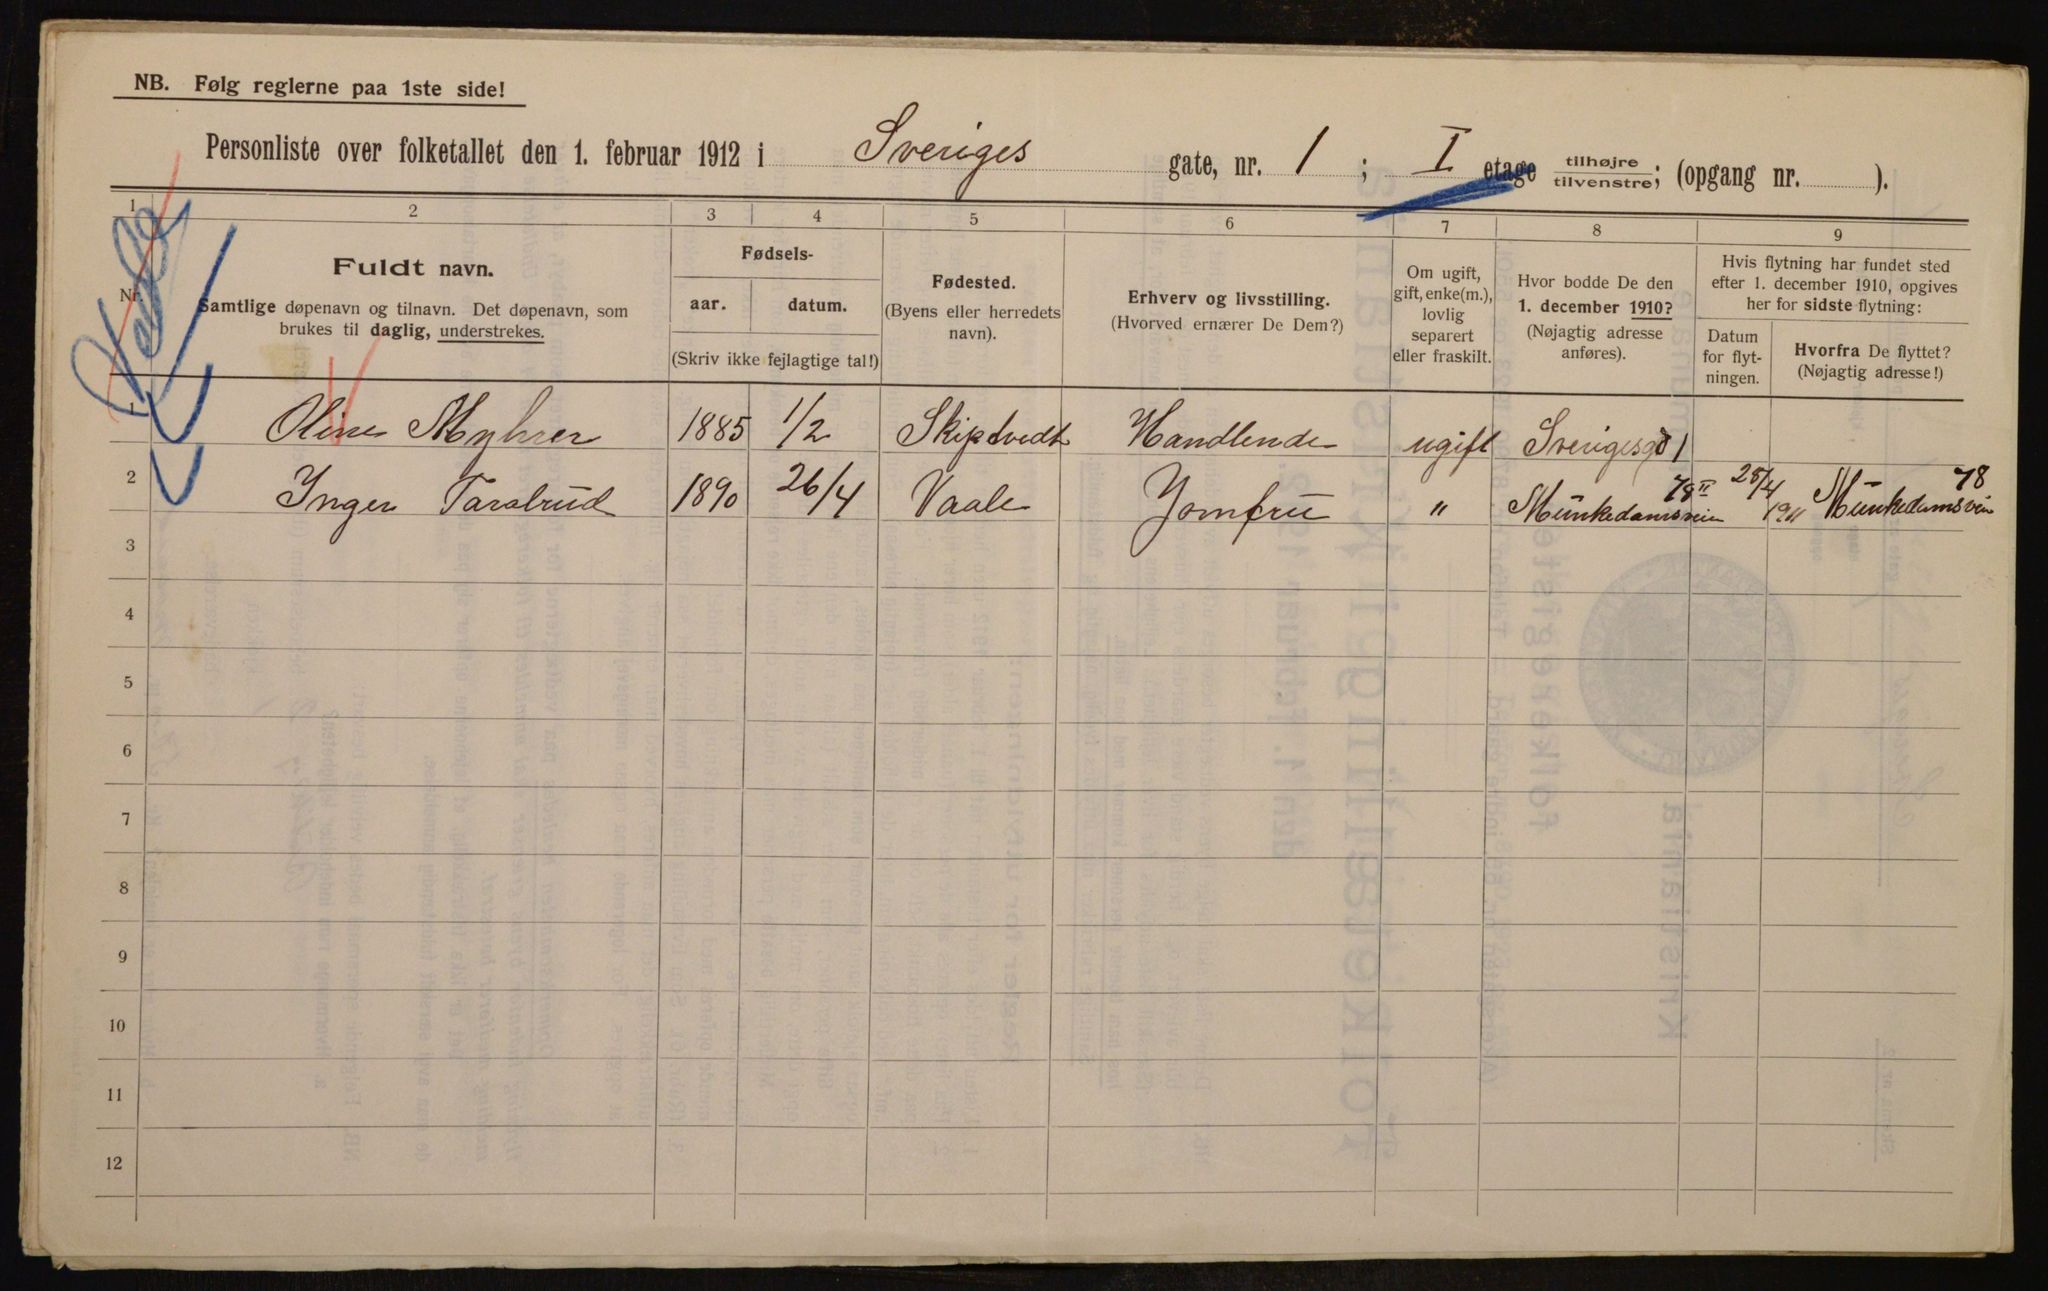 NB. Følg reglerne paa 1ste side!
Personliste over folketallet den 1. februar 1912 i Sveriges gate, nr. 1; I etage tilhøjre/tilvenstre; (opgang nr. ).
1 2 3 4 5 6 7 8 9
Nr.
Fuldt navn.
Samtlige døpenavn og tilnavn. Det døpenavn, som
brukes til daglig, understrekes.
Fødsels-
aar. datum.
(Skriv ikke fejlagtige tal!)
Fødested.
(Byens eller herredets
navn).
Erhverv og livsstilling.
(Hvorved ernærer De Dem?)
Om ugift,
gift, enke(m.),
lovlig
separert
eller fraskilt.
Hvor bodde De den
1. december 1910?
(Nøjagtig adresse
anføres).
Hvis flytning har fundet sted
efter 1. december 1910, opgives
her for sidste flytning:
Datum
for flyt-
ningen.
Hvorfra De flyttet?
(Nøjagtig adresse!)
1 Oline Myhrer 1885 1/2 Skiptvedt Handlende ugift Sverigesgd 1
2 Inger 1890 26/4 Vaale Jomfru " Munkedamsveien 78 II 25/4 1911 Munkedamsvein 78
3
4
5
6
7
8
9
10
11
12